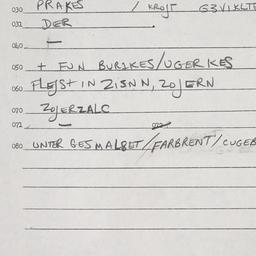 030 PRAKES / KROJT G3VIKLTE
032 DER
040 —
050 + FUN BURIKES/UGERKES
060 FLEJST IN ZISNN, ZOJERN
070 ZOJERZALC
072 —
080 UNTER GESMALSET/FARBRENT/CUGEB